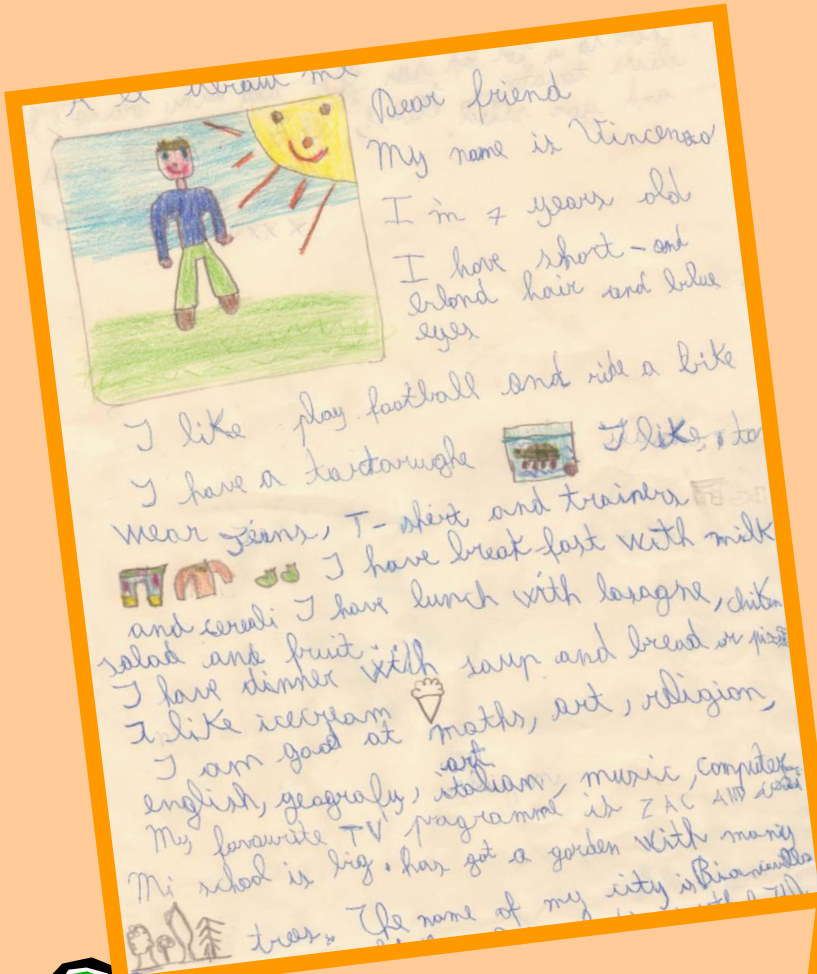 Dear friend
My name is Vincenzo
I'm 7 years old
I have short - and
blond hair and blue
eyes
I like play football and ride a bike
I have a tartarughe I like to
wear Jeans, T-shirt and trainers
I have break-fast with milk
and cereali I have lunch with lasagne, chiken
salad and fruit.
I have dinner with soup and bread or pizza
I like icecream
I am good at maths, art, religion,
art
english, geografy, italian, music, computer
My favourite TV pagramme is ZAC AND
Mi school is big. has got a gorden with many
trees. The name of my city is